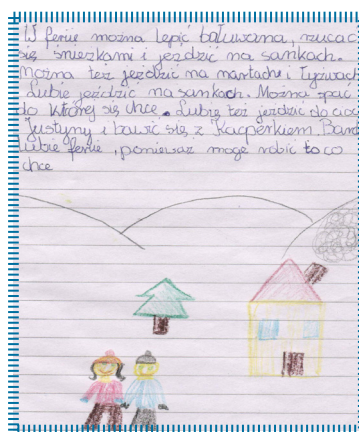 W ferie można lepić bałwana, rzucać
się śnieżkami i jeździć na sankach.
Można też jeździć na nartach i łyżwach
Lubię jeździć na sankach. Można spać
do której się chce. Lubię też jeździć do cioci
Justyny i bawić się z Kacperkiem. Bard
Lubię ferie, ponieważ mogę robić to co
chcę